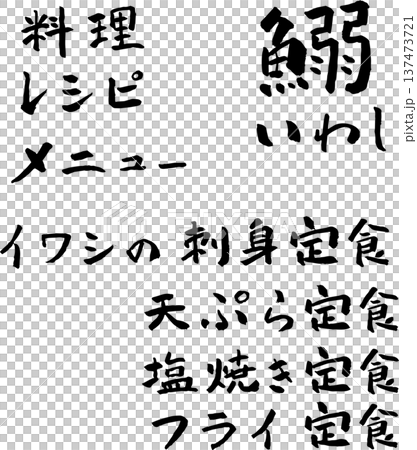 料理
レシピ
メニュー
鰯
いわし
イワシの刺身定食
天ぷら定食
塩焼き定食
フライ定食
pixta.jp - 137473721